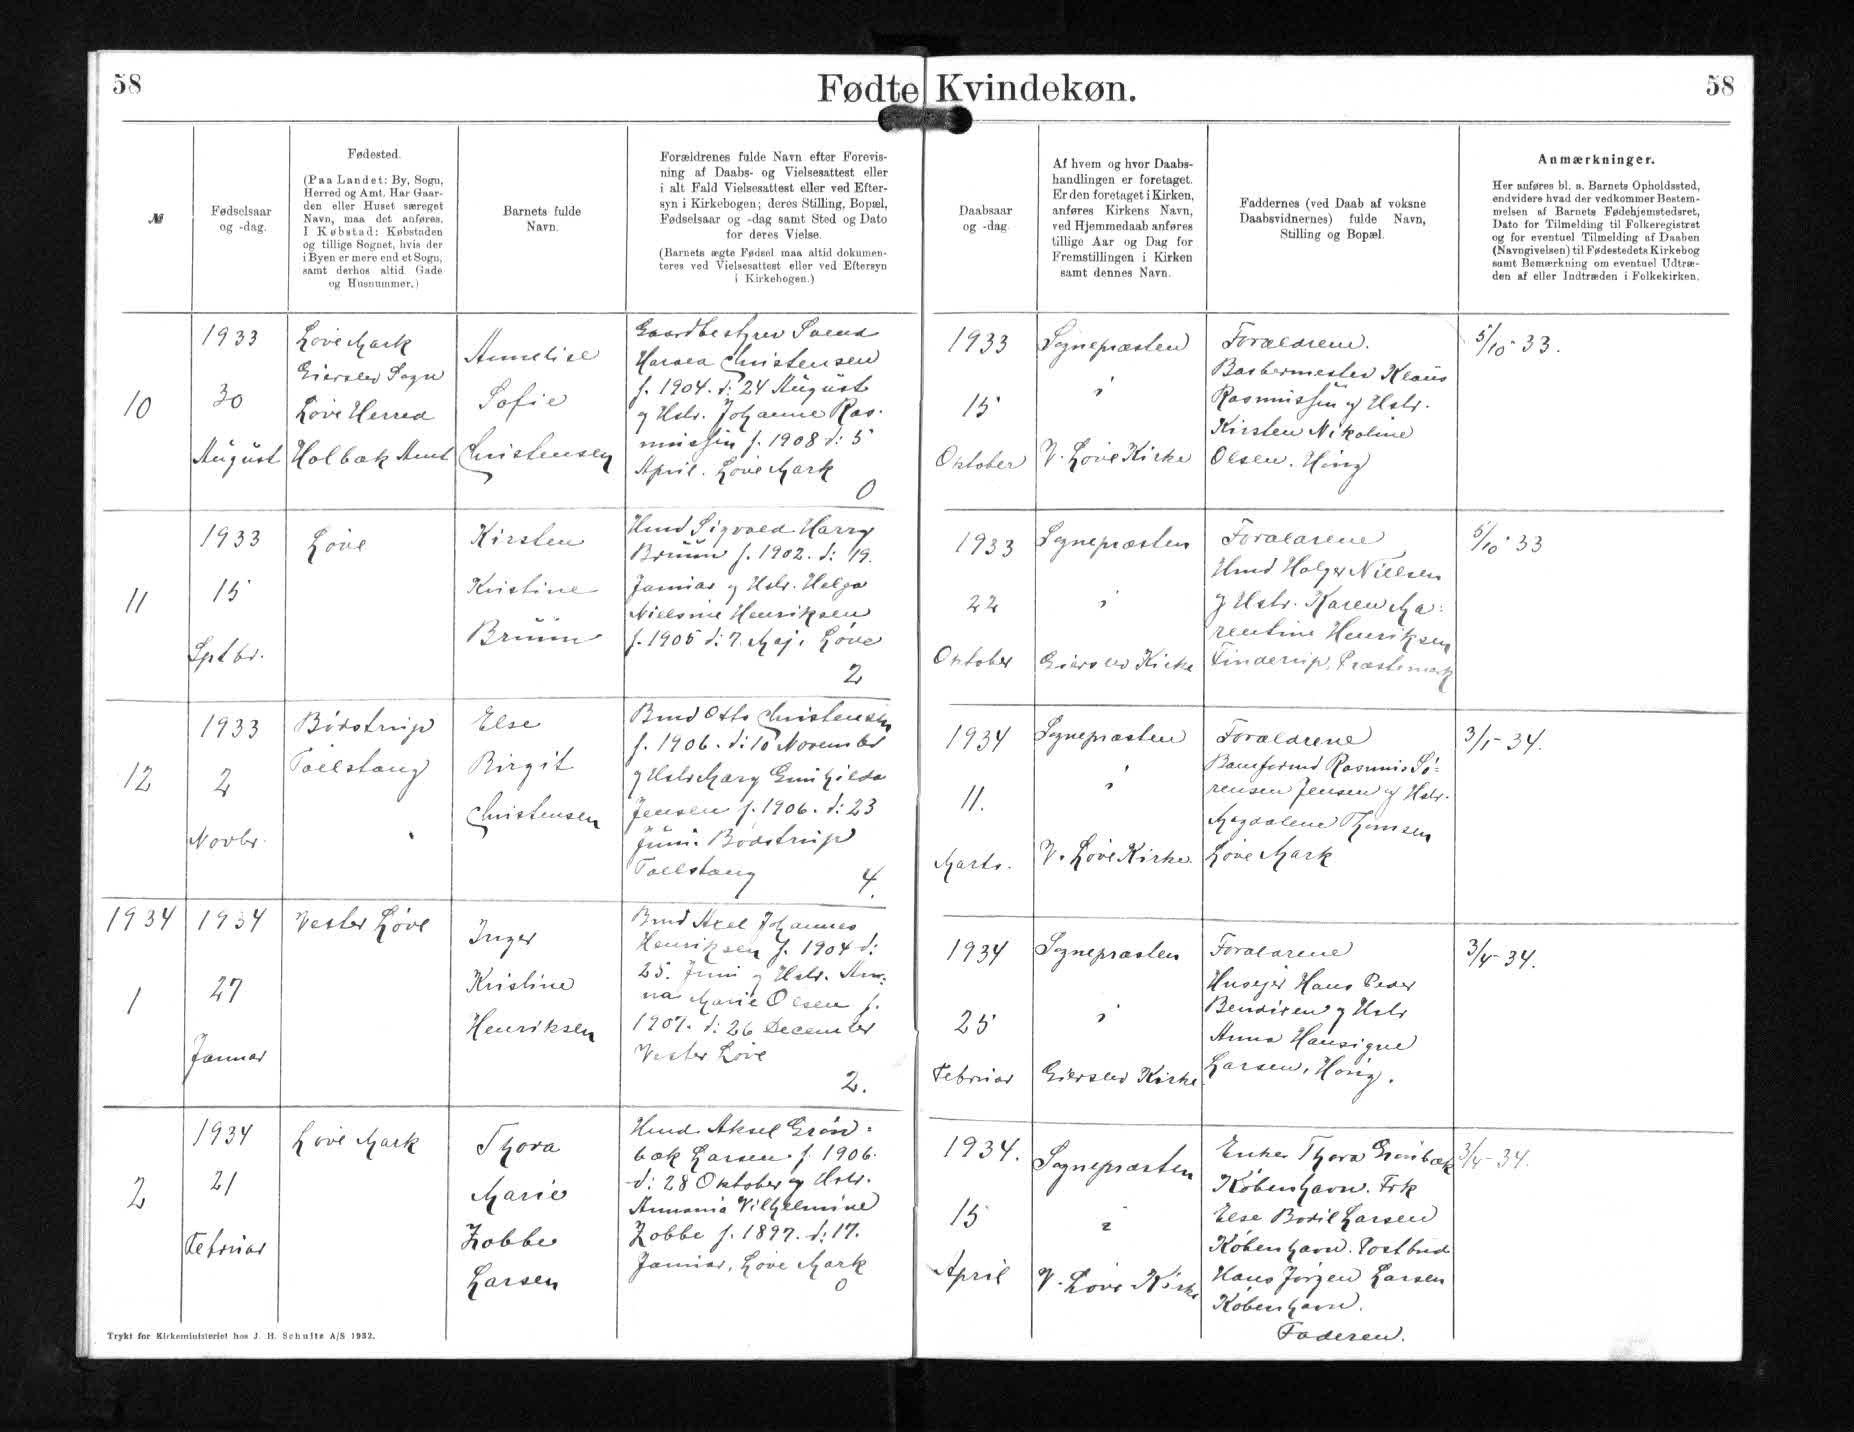 58
Fødte Kvindekøn.
58
№
Fødselsaar
og -dag.
Fødested.
(Paa Landet: By, Sogn,
Herred og Amt. Har Gaar-
den eller Huset særeget
Navn, maa det anføres.
I Købstad: Købstaden
og tillige Sognet, hvis der
i Byen er mere end et Sogn,
samt derhos altid Gade
og Husnummer.)
Barnets fulde
Navn.
Forældrenes fulde Navn efter Forevis-
ning af Daabs- og Vielsesattest eller
i alt Fald Vielsesattest eller ved Efter-
syn i Kirkebogen; deres Stilling, Bopæl,
Fødselsaar og -dag samt Sted og Dato
for deres Vielse.
(Barnets ægte Fødsel maa altid dokumen-
teres ved Vielsesattest eller ved Eftersyn
i Kirkebogen.)
Daabsaar
og -dag.
Af hvem og hvor Daabs-
handlingen er foretaget.
Er den foretaget i Kirken,
anføres Kirkens Navn,
ved Hjemmedaab anføres
tillige Aar og Dag for
Fremstillingen i Kirken
samt dennes Navn.
Faddernes (ved Daab af voksne
Daabsvidnernes) fulde Navn,
Stilling og Bopæl.
Anmærkninger.
Her anføres bl. a. Barnets Opholdssted,
endvidere hvad der vedkommer Bestem-
melsen af Barnets Fødehjemstedsret,
Dato for Tilmelding til Folkeregistret
og for eventuel Tilmelding af Daaben
(Navngivelsen) til Fødestedets Kirkebog
samt Bemærkning om eventuel Udtræ-
den af eller Indtræden i Folkekirken.
10
1933
30
August
Løve Mark
Gierslev Sogn
Løve Herred
Holbæk Amt
Annelise
Sofie
Christensen
Gaardbestyrer Svend
Harald Christensen
f. 1904. d: 24 August
og Hstr. Johanne Ras-
mussen f. 1908 d: 5
April. Løve Mark
0
1933
15
Oktober
Sognepræsten
i
V. Løve Kirke
Forældrene.
Barbermester Klaus
Rasmussen og Hstr.
Kirsten Nikoline
Olsen. Høng
5/10-33.
11
1933
15
Sptbr.
Løve
Kirsten
Kristine
Bruun
Hmd Sigvald Harry
Bruun f. 1902. d: 19.
Januar og Hstr. Helga
Nielsine Henriksen
f. 1905 d: 7. Maj. Løve
2
1933
22
Oktober
Sognepræsten
i
Gierslev Kirke
Forældrene
Hmd Holger Nielsen
og Hstr. Karen Ma-
rentine Henriksen
Finderup, Præstemark
5/10-33
12
1933
2
Novbr.
Bødstrup
Tællstang
Else
Birgit
Christensen
Bmd Otto Christensen
f. 1906. d: 10 November
og Hstr Mary Gunhilda
Jensen f. 1906. d: 23
Juni. Bødstrup
Tællstang
4.
1934
11.
Marts.
Sognepræsten
i
V. Løve Kirke
Forældrene
Banformd Rasmus Sø-
rensen Jensen og Hstr.
Magdalene Thomsen
Løve Mark
3/1-34.
1934
1
1934
27
Januar
Vester Løve
Inger
Kristine
Henriksen
Bmd Axel Johannes
Henriksen f. 1904 d:
25. Juni og Hstr. An-
na Marie Olsen f.
1907. d: 26 December
Vester Løve
2.
1934
25
Februar
Sognepræsten
i
Gierslev Kirke
Forældrene
Husejer Hans Peder
Bendixen og Hstr
Anna Hansigne
Larsen, Høng.
3/4-34.
2
1934
21
Februar
Løve Mark
Thora
Marie
Zobbe
Larsen
Hmd. Aksel Grøn-
bæk Larsen f. 1906.
d: 28 Oktober og Hstr.
Annonia Vilhelmine
Zobbe f. 1897. d: 17.
Januar, Løve Mark
0
1934.
15
April
Sognepræsten
i
V. Løve Kirke
Enke Thora Grønbæk
København. Frk
Else Bodil Larsen
København. Postbud
Hans Jørgen Larsen
København.
Faderen.
3/4-34.
Trykt for Kirkeministeriet hos J. H. Schultz A/S 1932.